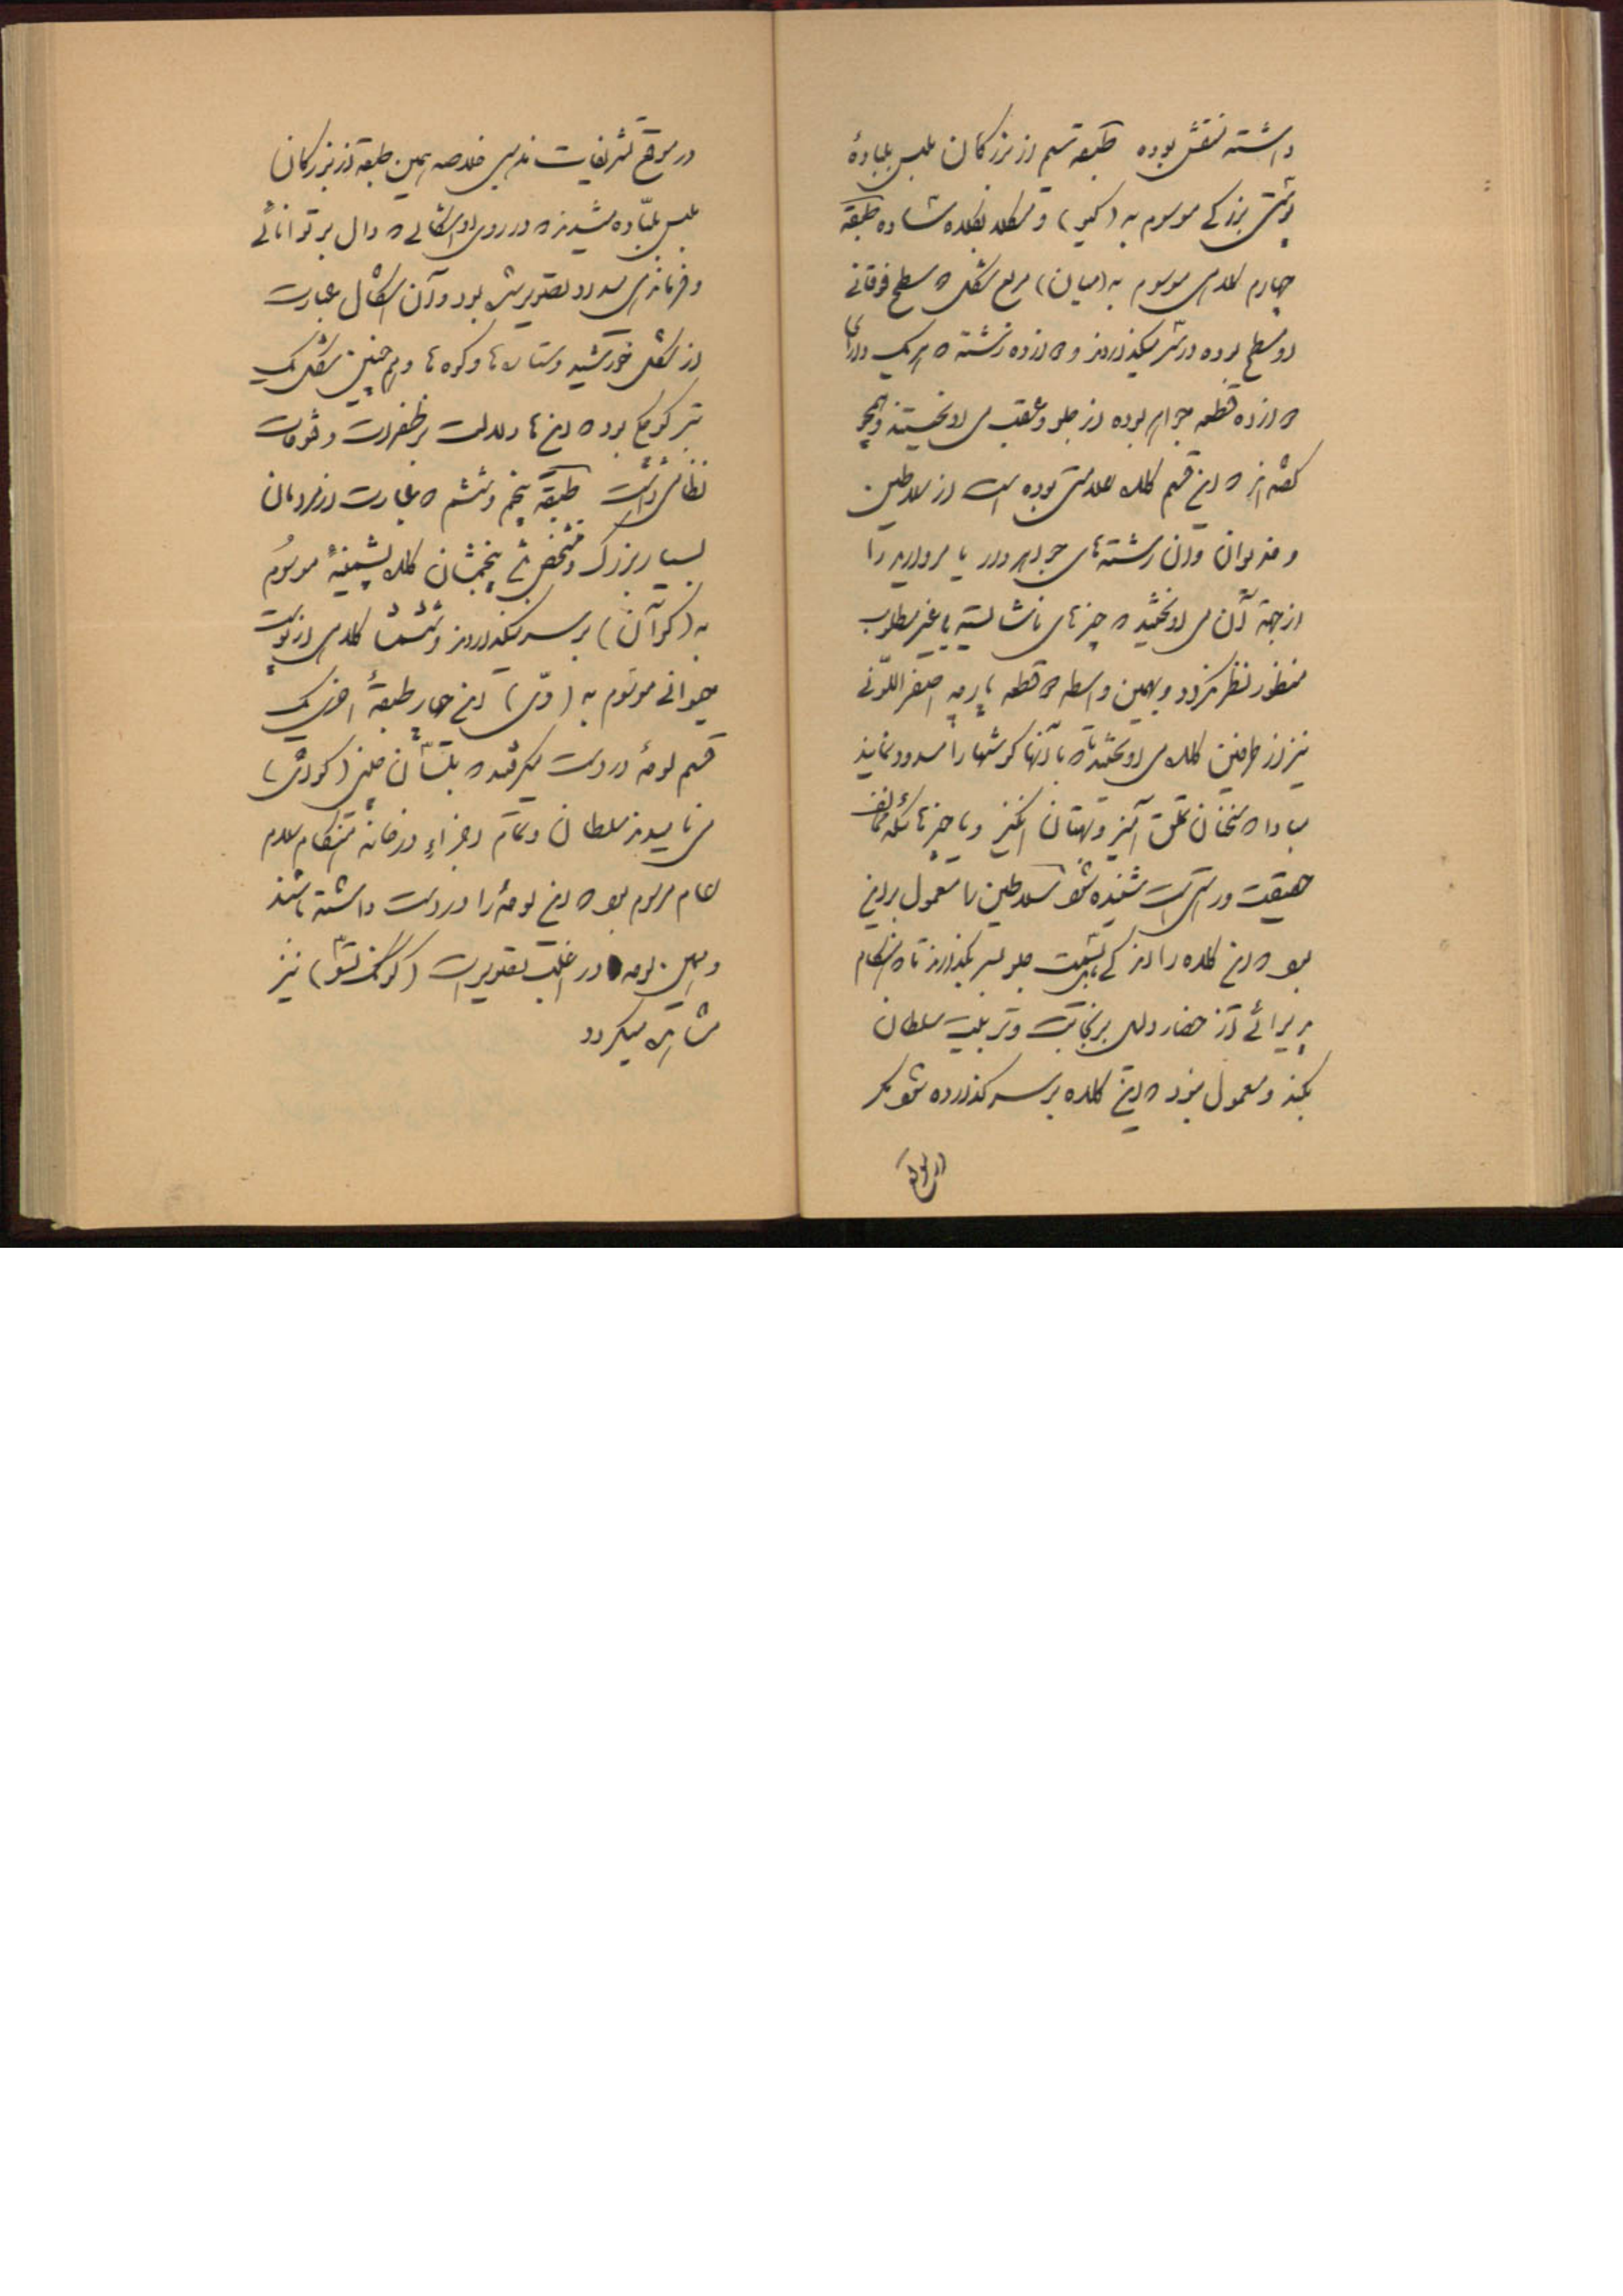 داشته منقش بوده طبقه سیم از بزرگان ملبس بلباده
بزرکی موسوم به (کیو) و
چهارم کلاهی موسوم به (میان) مربع شکل که سطح فوقانی
او مسطح بوده در سر میگذاردند و دوازده رشته که هریک دارای
دوازده قطعه جواهر بوده از جلو و عقب می آویختند و همچو
گفته اند که این قسم کلاه علامتی بوده است از سلاطین
و خدیوان و آن رشته های جواهر و در یا مروارید را
از جهة آن می آویختند که چیزهای ناشایسته یا غیر مطلوب
منظور نظر نگردد و بهمین واسطه دو قطعه پارچه اصفر اللونی
نیز از طرفین کلاه می آویختند تا که با آنها گوشها را مسدود نمایند
مبادا که سخنان تملق آمیز و بهتان انگیز و یا چیزهائیکه مخالف
حقیقت و راستی است شنیده شود سلاطین را معمول بر این
بود که این کلاه را اندکی پشت جلو بسر بگذارند تا هنگام
پذیرائی از حضار دلیل بر نجابت و تربیت سلطان
بکند و معمول نبود که این کلاه بر سر گذارده شود مگر
در موقع
در موقع تشریفات مذهبی خلاصه همین طبقه از بزرگان
ملبس بلباده میشدند که در روی او اشکالی که دال بر توانائی
و فرمانذهی تصویر شده بود و آن اشکال عبارت
از شکل خورشید و ستاره ها و کوه ها و همچنین شکل یک
تبر کوچک بود که این ها دلالت بر ظفرات و فتوحات
نظامی داشت طبقه پنجم و ششم که عبارت از مردمان
بسیار بزرگ و متشخص پنجمشان کلاه پشمینه موسوم
به (کوآن) بر سر میگذاردند و ششمشان کلاهی از پوست
حیوانی موسوم به (وی) این چهار طبقه اخری یک
قسم لوحه در دست میگرفتند که بلسان چینی (کودی)
می نامیدند سلطان و تمام اجزاء درخانه هنگام سلام
عام مرسوم بود که این لوحه را در دست داشته باشند
و همین لوحه در اغلب تصویرات (کونگ تسو) نیز
مشاهده میگردد